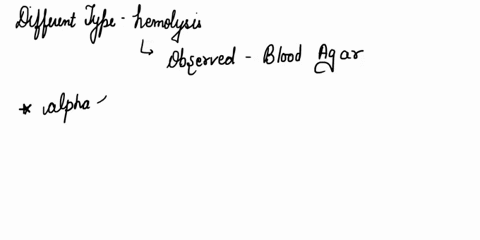 Different Type - hemolysis
↳ Observed - Blood Agar
* alpha -